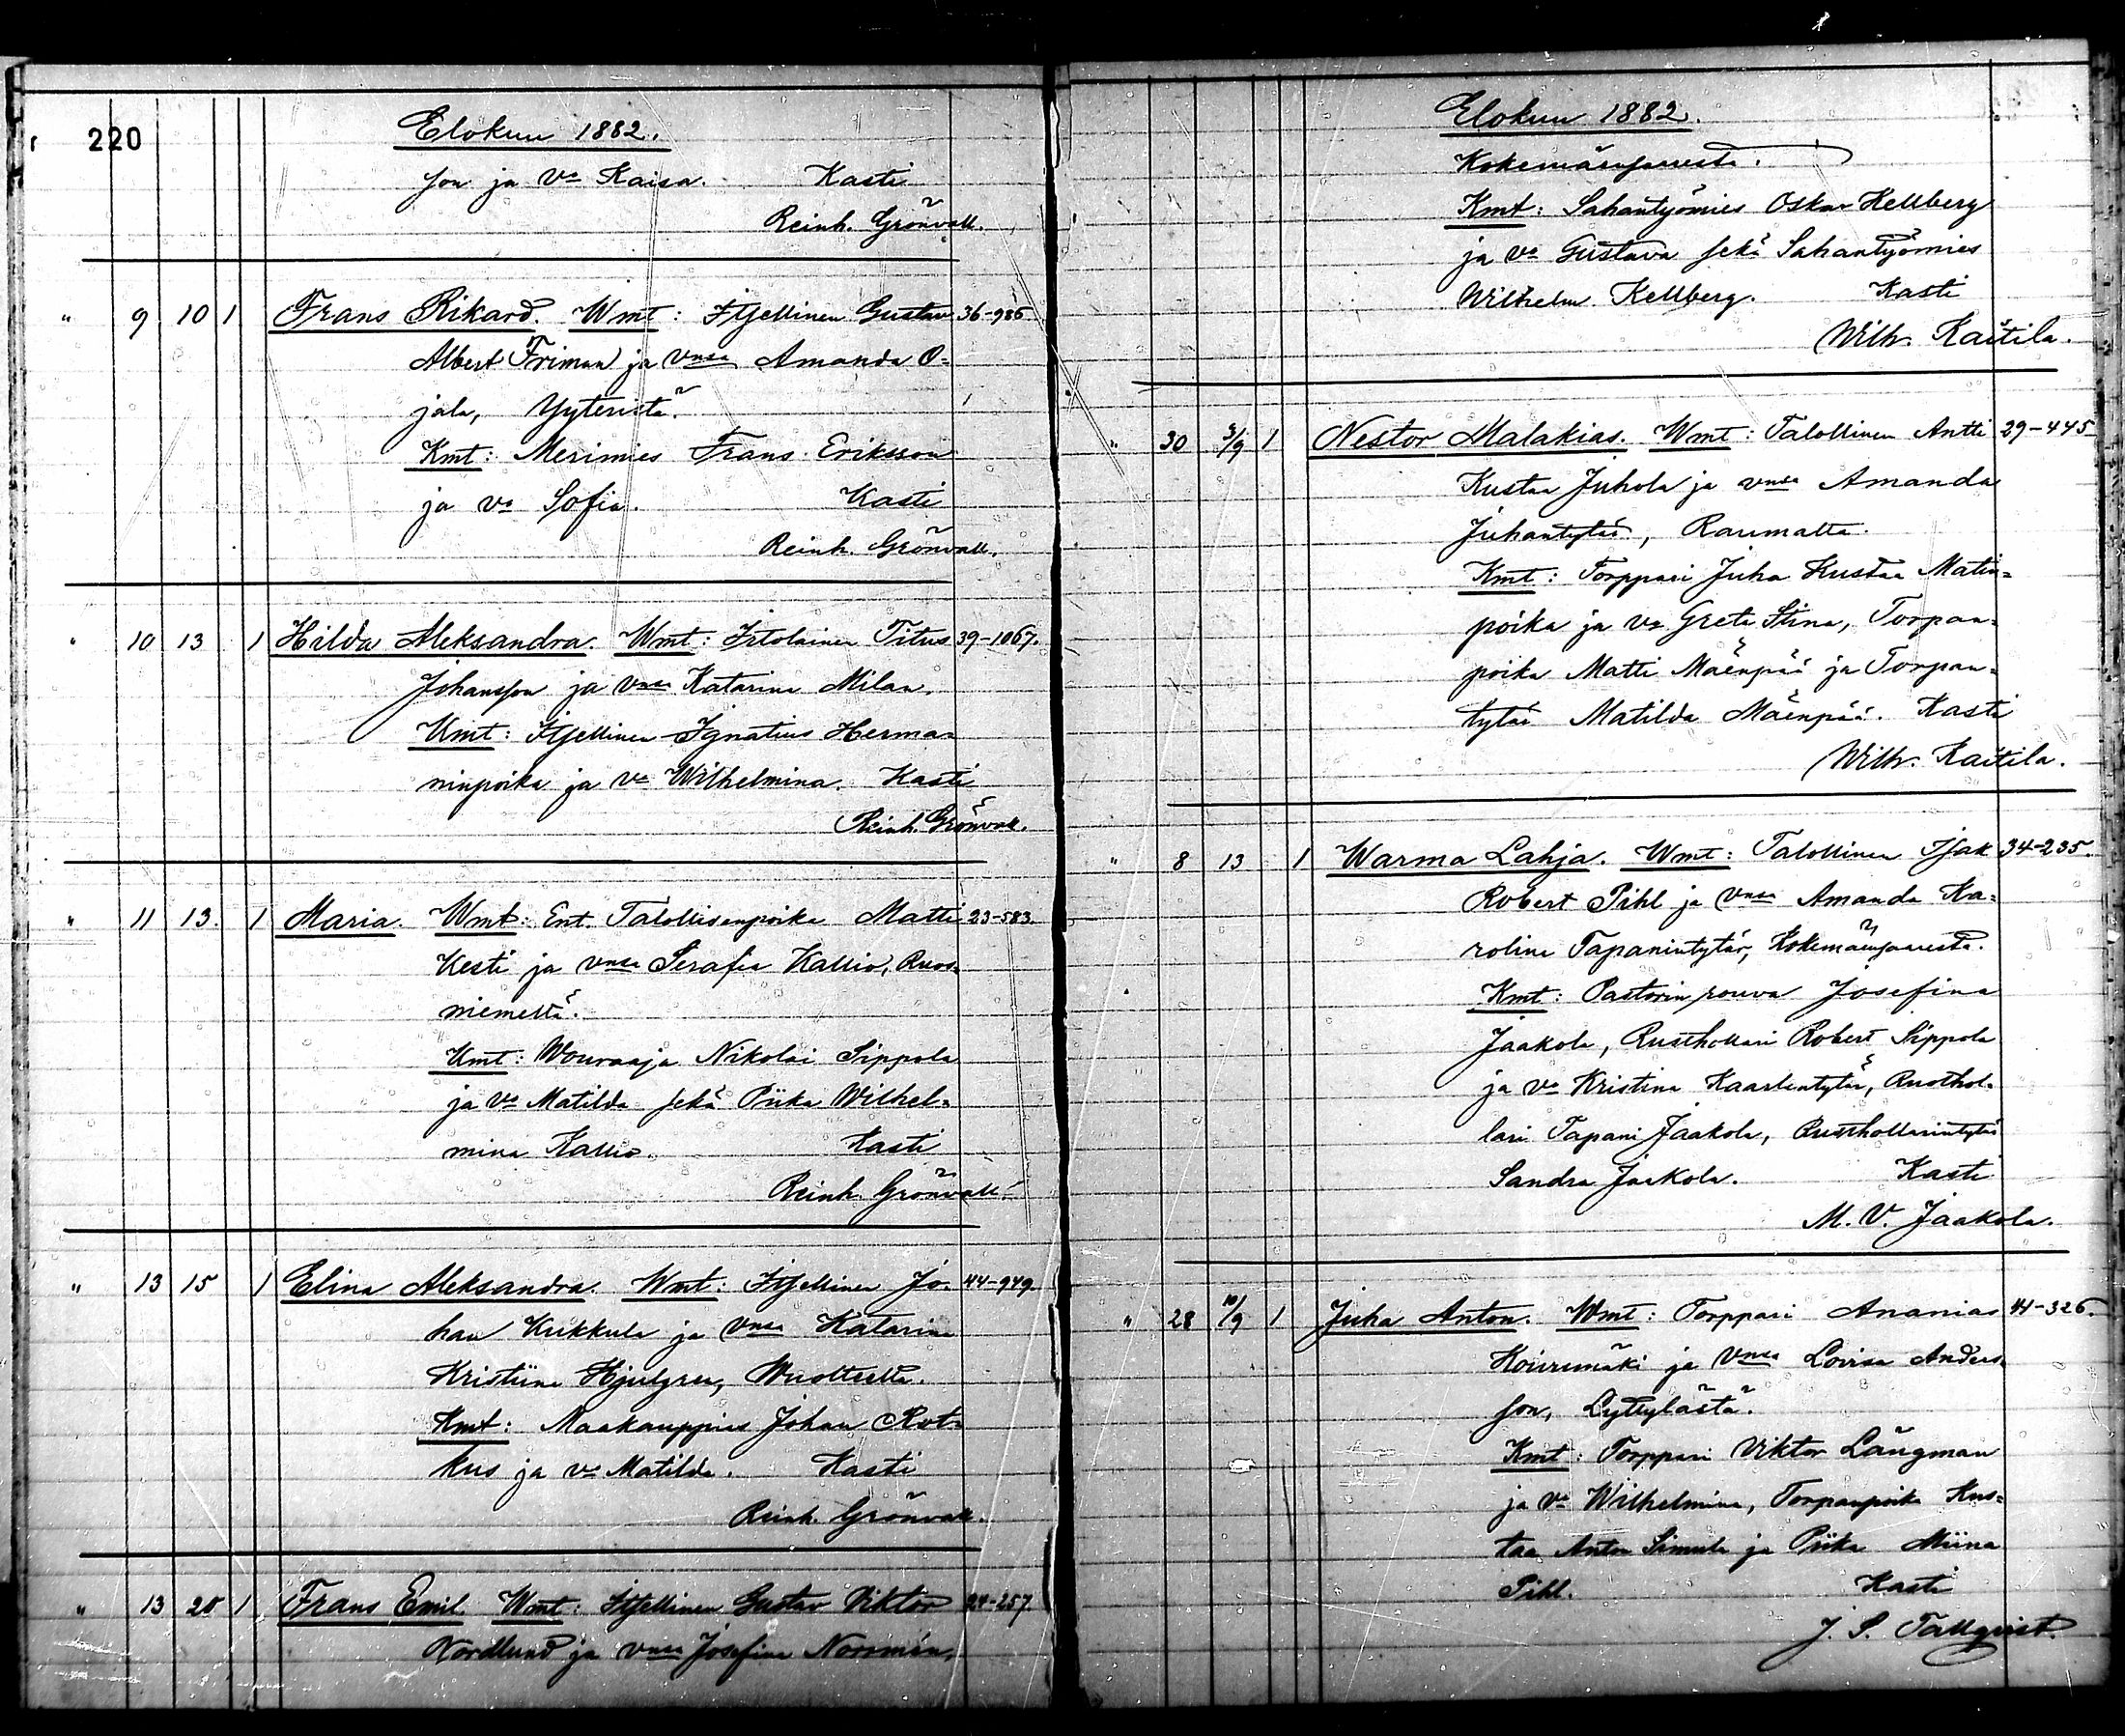 220
Elokuu 1882.
son ja Vo Kaisa. Kasti
Reinh. Grönvall.
" 9 10 1 Frans Rikard. Wmt: Itsellinen Gustav 36-986
Albert Friman ja vnsa Amanda O-
jala, Yyteristä.
Kmt: Merimies Frans Eriksson
ja vo Sofia. Kasti
Reinh. Grönvall.
" 10 13 1 Hilda Aleksandra. Wmt: Irtolainen Titus 39-1067.
Johansson ja vnsa Katarina Milan.
Kmt: Itsellinen Ignatius Herma-
ninpoika ja vo Wilhelmina. Kasti
Reinh. Grönvall.
" 11 13. 1 Maria. Wmt: Ent. Talollisenpoika Matti 23-583.
Kesti ja vnsa Serafia Kallio, Ruos-
niemeltä.
Kmt: Wouraaja Nikolai Sippola
ja vo Matilda sekä Piika Wilhel-
mina Kallio. Kasti
Reinh. Grönvall.
" 13 15 1 Elina Aleksandra. Wmt: Itsellinen Jo- 44-949.
han Kukkula ja vnsa Katarina
Kristiina Hjulgren,
Kmt: Maakauppias Johan Rot-
kus ja vo Matilda. Kasti
Reinh. Grönvall.
" 13 20 1 Frans Emil. Wmt: Itsellinen Gustav Viktor 24-257.
Nordlund ja vnsa Josefina Norrmén,
Elokuu 1882.
Kokemäensaaresta.
Kmt: Sahantyömies Oskar Hellberg
ja vo Gustava sekä Sahantyömies
Wilhelm Kellberg. Kasti
Wilh. Kaitila.
" 30 3/9 1 Nestor Malakias. Wmt: Talollinen Antti 29-445
Kustaa Juhola ja vnsa Amanda
Juhantytär, Raumalta.
Kmt: Torppari Juha Kustaa Matin-
poika ja vo Greta Stina, Torpan-
poika Matti Mäenpää ja Torpan-
tytär Matilda Mäenpää. Kasti
Wilh. Kaitila.
" 8 13 1 Warma Lahja. Wmt: Talollinen Isak 34-235.
Robert Pihl ja vnsa Amanda Ka-
rolina Tapanintytär, Kokemäensaaresta.
Kmt: Pastorin rouva Josefina
Jaakola, Rusthollari Robert Sippola
ja vo Kristina Kaarlentytär, Rusthol-
lari Tapani Jaakola, Rusthollarintytär
Sandra Jaakola. Kasti
M. V. Jaakola.
" 28 10/9 1 Juha Anton. Wmt: Torppari Ananias 44-326.
Koivumäki ja vnsa Lovisa Anders-
son, Lyttylästä.
Kmt: Torppari Viktor Långman
ja vo Wilhelmina, Torpanpoika Kus-
taa Anton Simula ja Piika Miina
Pihl. Kasti
J. S. Tallqvist.